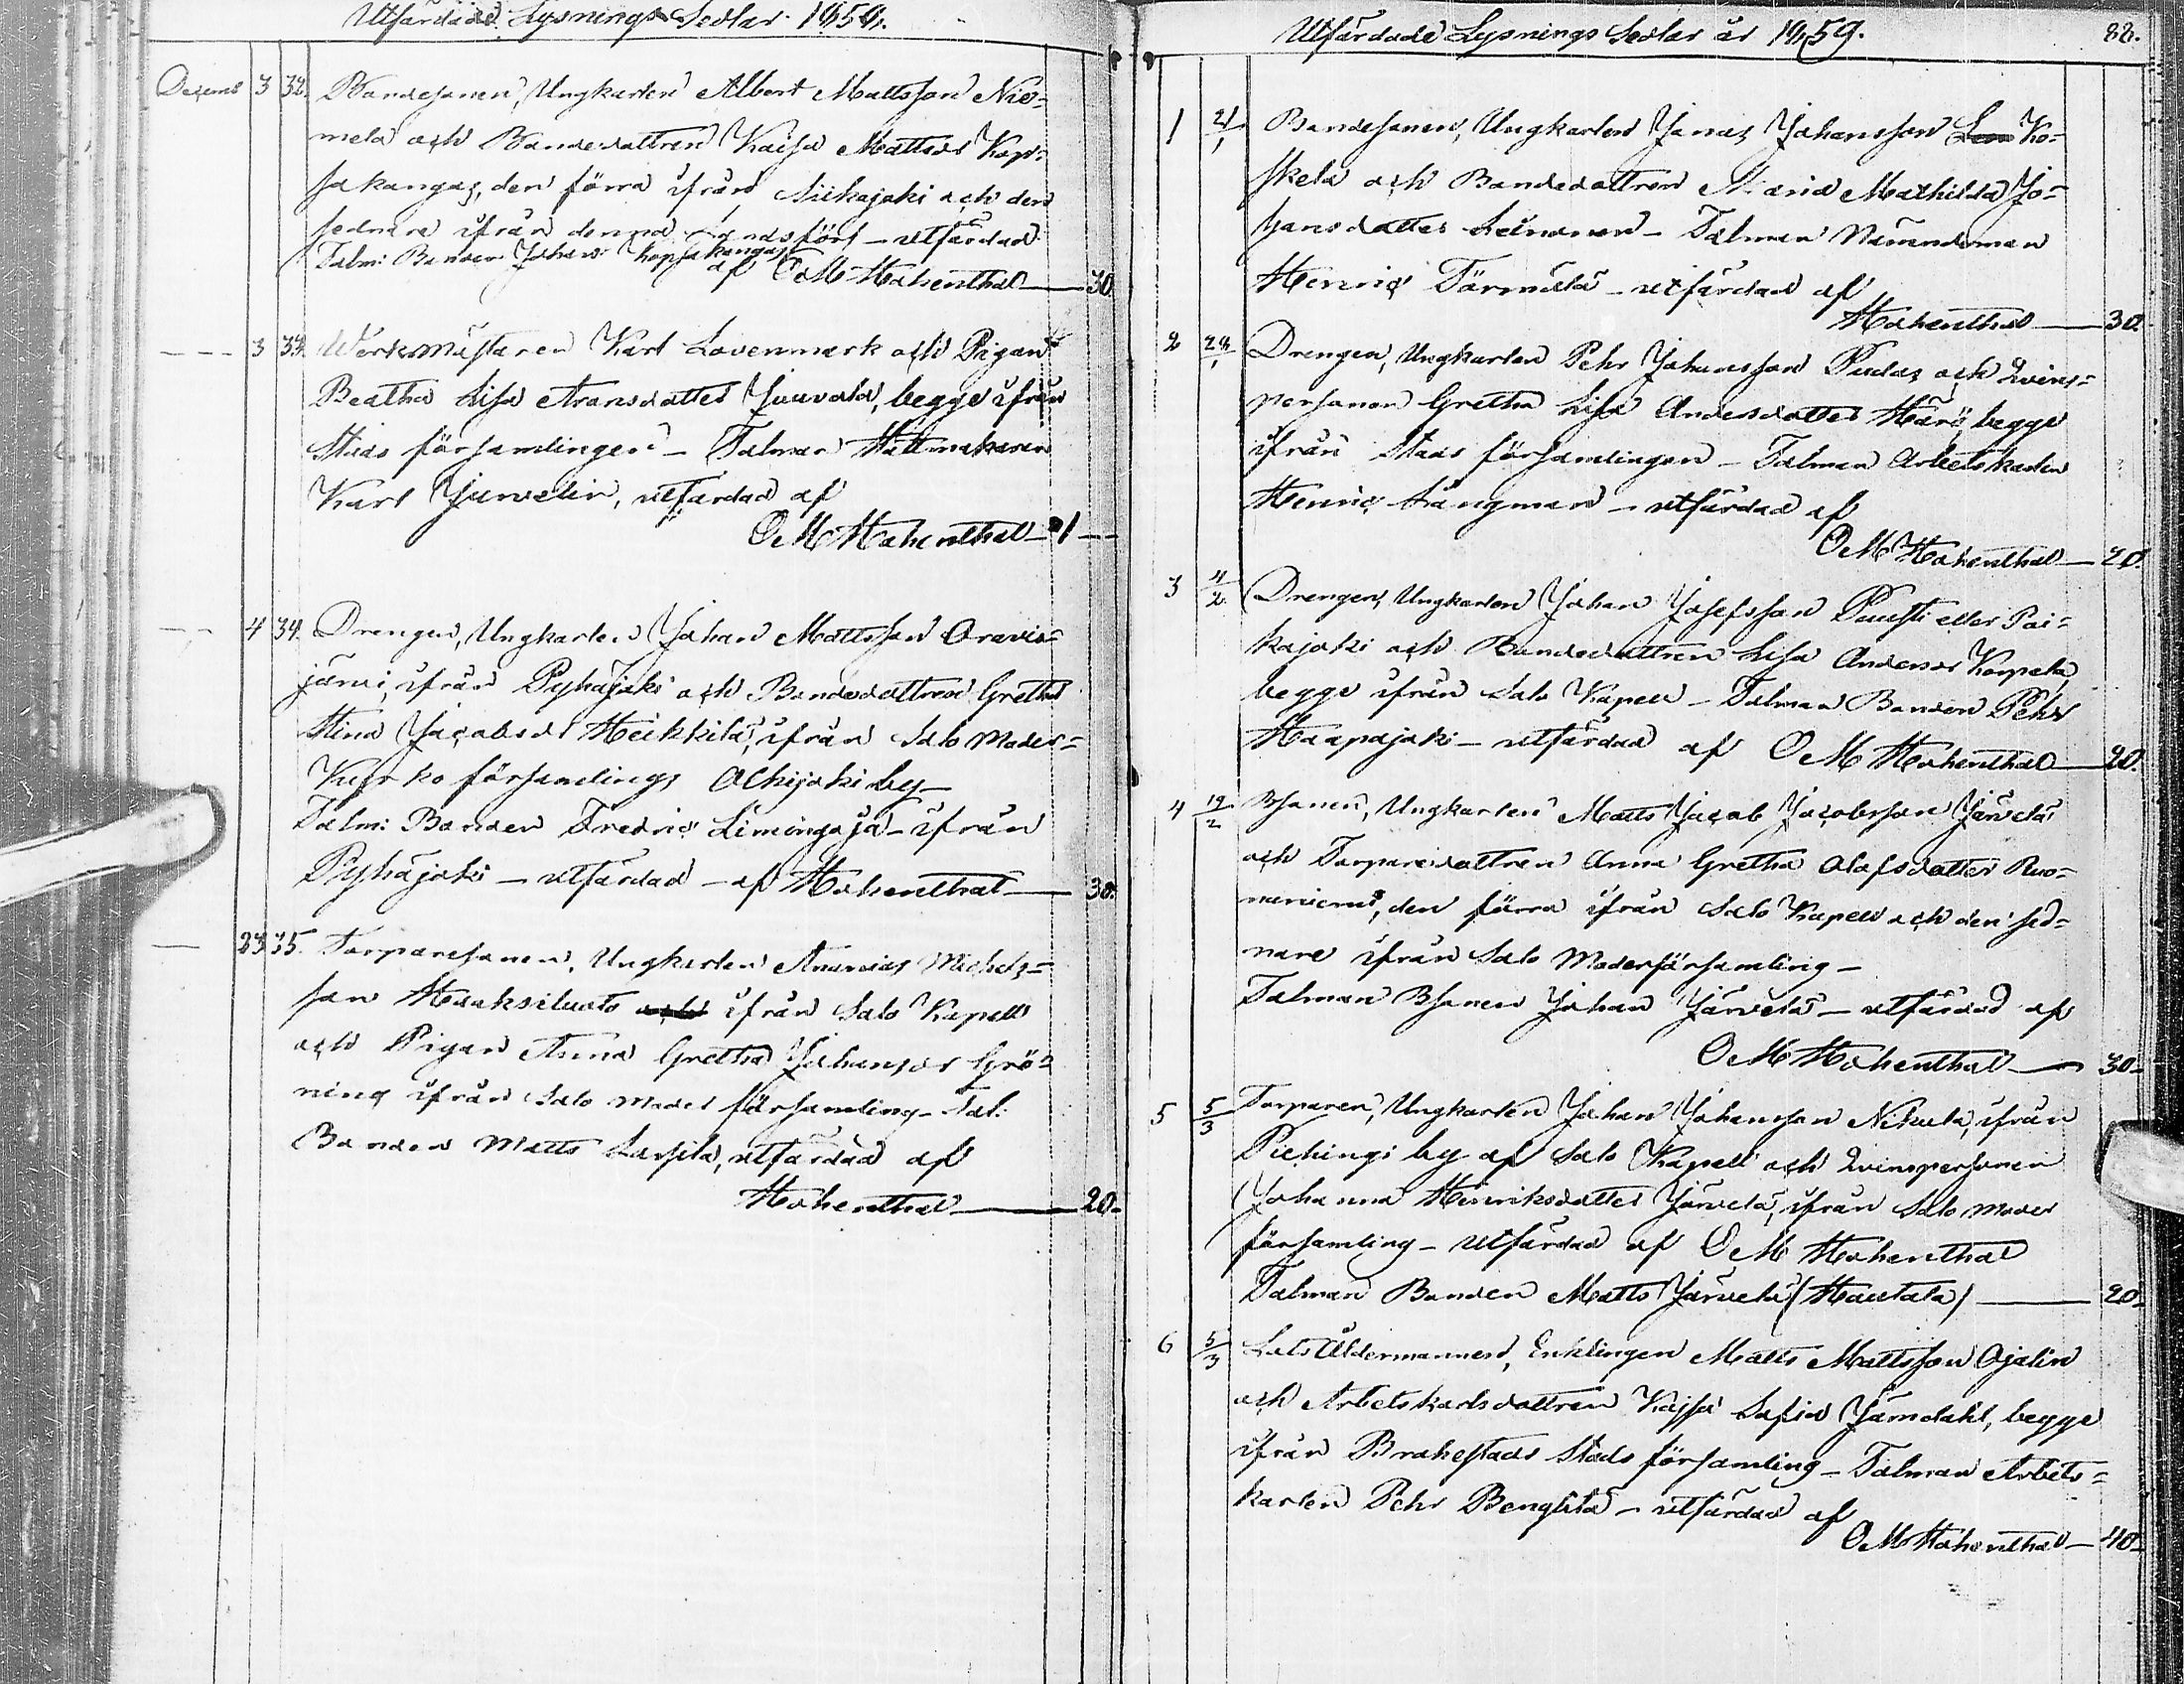 Utfärdade Lysnings Sedlar 1859.
Decemb 3 32. Bondesonen, Ungkarlen Albert Mattsson Nie=
melä och Bondedottren Kaisa Mattsdr Kop=
sakangas, den förra ifrån Siikajoki och den
sednare ifrån denna – utfärdad
Talm: Bonden Johan Kopsakangas
af OM Hohenthal — 30.
– – – 3 33. Werkmästaren Karl Lovenmark och Pigan
Beatha Lisa Aronsdotter Juuvala, begge ifrån
Stads församlingen – Talman Hattmakaren
Karl Jurvelin, utfärdad af
OM Hohenthal – 1 –
– – 4 34. Drengen, Ungkarlen Johan Mattsson Oravis=
järvi, ifrån Pyhäjoki och Bondedottren Gretha
Stina Jacobsdr Heikkilä, ifrån Salo Moder=
Kyrko församlings Olkijoki by –
Talm: Bonden Fredric Liminगoja – ifrån
Pyhäjoki – utfärdad – af Hohenthal — 30.
— 23 35. Torparesonen, Ungkarlen Ananias Michels=
son Hauksiluoto ifrån Salo Kapell
och Pigan Anna Gretha Johansdr Grö=
ning ifrån Salo Moder församling – Tal:
Bonden Matts Lassila, utfärdad af
Hohenthal — 20.
Utfärdade Lysnings Sedlar år 1859. 88.
1 21/1 Bondesonen, Ungkarlen Jonas Johansson Ko=
skela och Bondedottren Maria Mathilda Jo=
hansdotter Leinonen – Talman Nämndeman
Henric Törmälä – utfärdad af
Hohenthal — 30.
2 24/1 Drengen, Ungkarlen Pehr Johansson Pudas och Qvins=
personen Gretha Lisa Andersdotter Härö, begge
ifrån Stads församlingen – Talman Arbetskarlen
Henric Långman – utfärdad af
OM Hohenthal — 20.
3 4/2 Drengen, Ungkarlen Johan Josefsson Pausti eller Pai=
kajoki och Bondedottren Lisa Andersdr Korpela,
begge ifrån Salo Kapell – Talman Bonden Pehr
Haapajoki – utfärdad af OM Hohenthal — 20.
4 19/2 Bsonen, Ungkarlen Matts Jacob Jacobsson Järvelä
och Torparedottren Anna Gretha Olofsdotter Ruo=
naniemi, den förra ifrån Salo Kapell och den sed=
nare ifrån Salo Moderförsamling –
Talman Bsonen Johan Järvelä – utfärdad af
OM Hohenthal — 30.
5 5/3 Torparen, Ungkarlen Johan Johansson Nikula, ifrån
Piehingi by af Salo Kapell och Qvinspersonen
Johanna Henriksdotter Järvelä, ifrån Salo Moder
församling – utfärdad af OM Hohenthal
Talman Bonden Matts Järvelä (Hautala) — 20.
6 5/3 Lots Åldermannen, Enklingen Matts Mattsson Ojalin
och Arbetskarlsdottren Kajsa Sofia Jämdahl, begge
ifrån Brahestads Stads församling – Talman Arbets=
karlen Pehr Bengtila – utfärdad af
OM Hohenthal — 40.